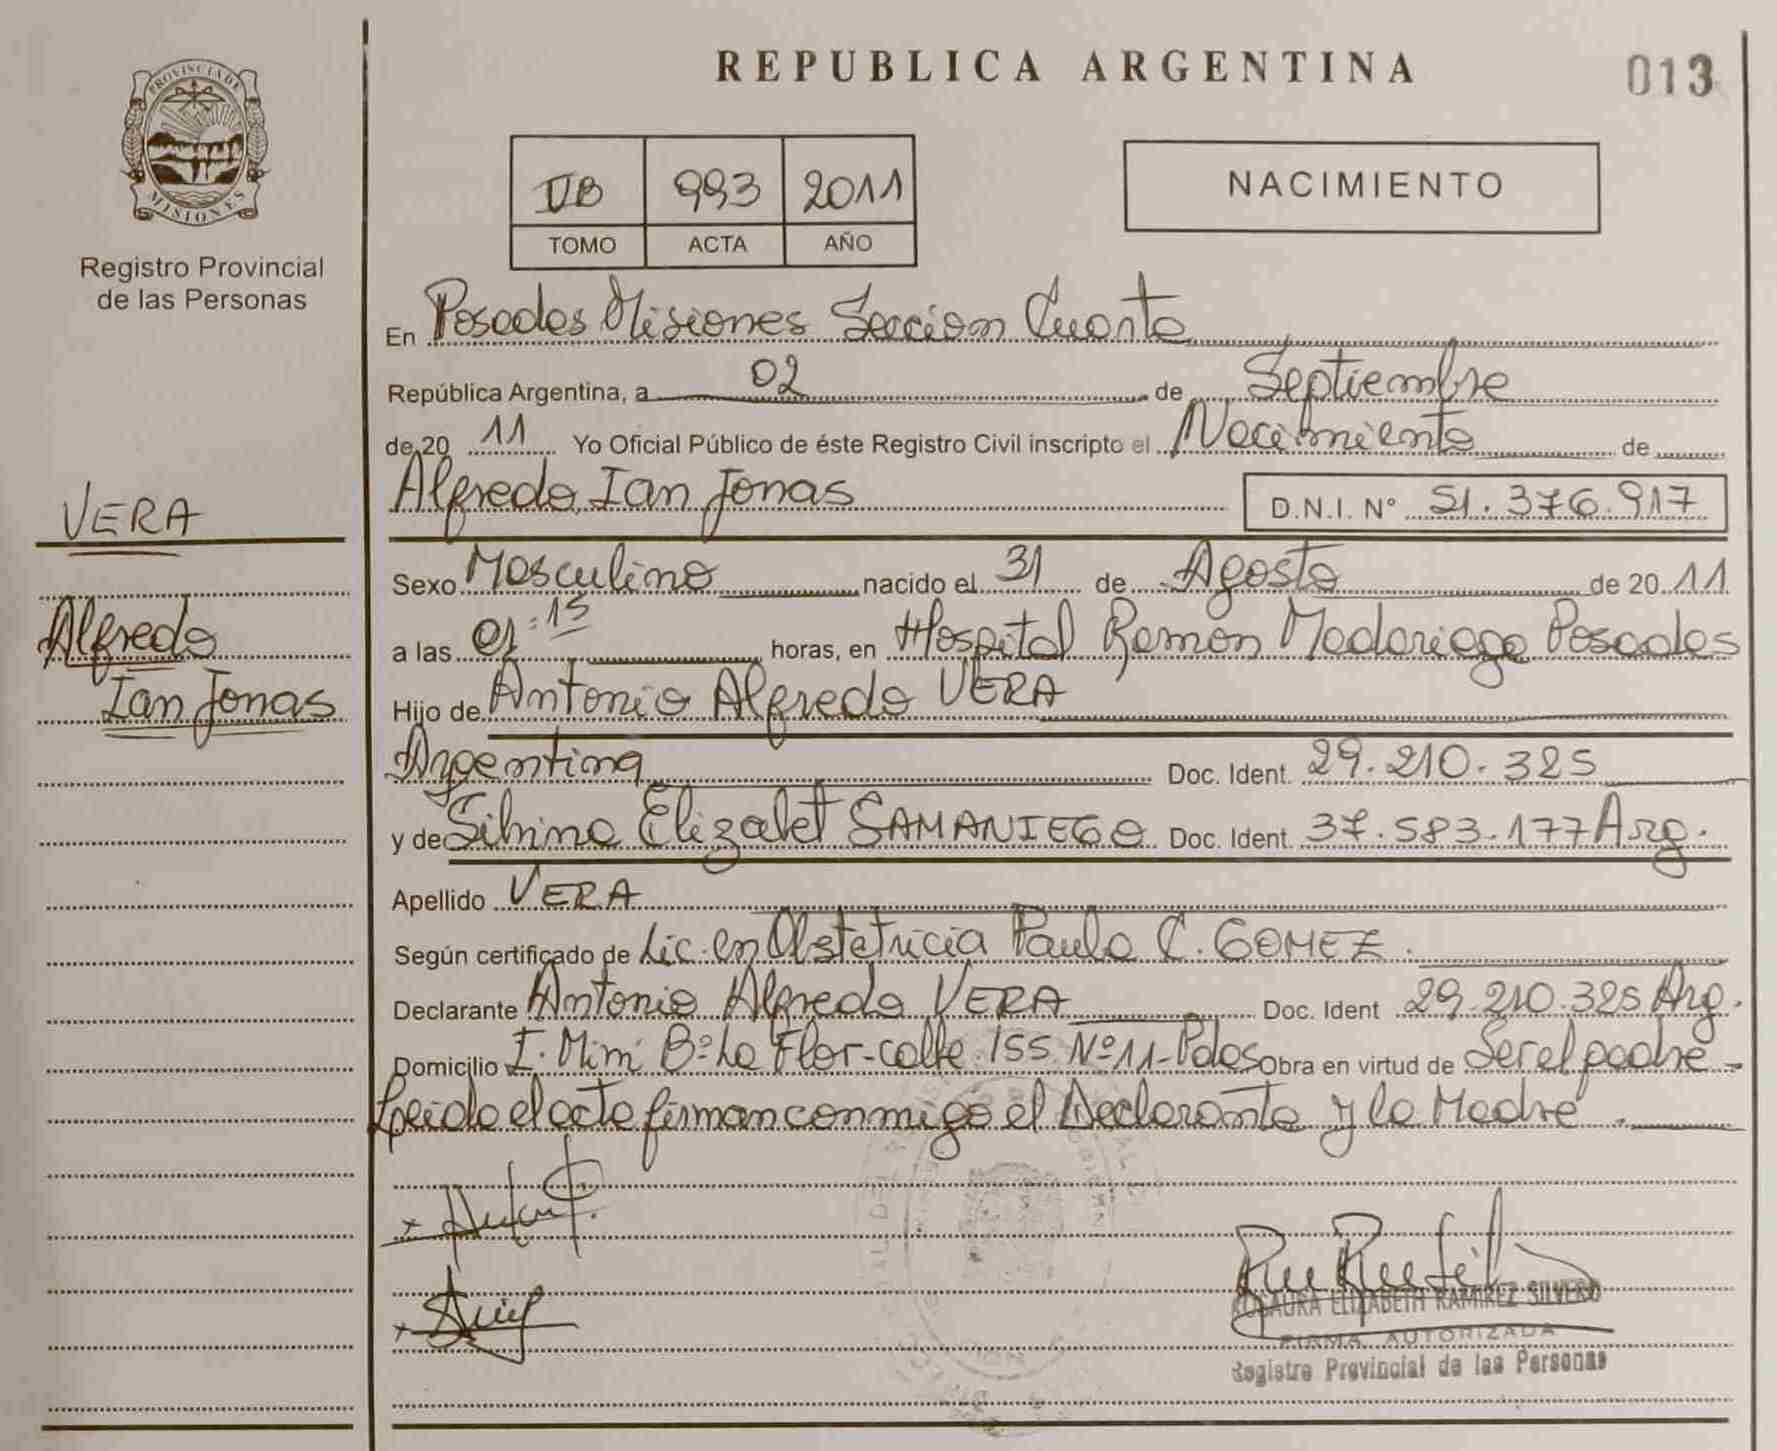 PROVINCIA DE
MISIONES
Registro Provincial
de las Personas
VERA
Alfredo
Ian Jonas
REPUBLICA ARGENTINA
013
993 2011
TOMO ACTA AÑO
NACIMIENTO
En Posadas Misiones Sección Cuarta
República Argentina, a 02 de Septiembre
de 20 11 Yo Oficial Público de éste Registro Civil inscripto el Nacimiento de
Alfredo Ian Jonas D.N.I. N° 51.376.917
Sexo Masculino nacido el 31 de Agosto de 20 11
a las 01:15 horas, en Hospital Ramon Madariaga Posadas
Hijo de Antonio Alfredo VERA
Argentina Doc. Ident. 29.210.325
y de Silvina Elizabet SAMANIEGO Doc. Ident. 37.583.177 Arg.
Apellido VERA
Según certificado de Lic. en Obstetricia Paula C. GOMEZ.
Declarante Antonio Alfredo VERA Doc. Ident 29.210.325 Arg.
Domicilio I. Miní Bº La Flor-calle 155 Nº 11-Pdas Obra en virtud de Ser el padre
Leido el acta firman conmigo el Declarante y la Madre.
LAURA ELIZABETH RAMIREZ SILVERO
FIRMA AUTORIZADA
Registro Provincial de las Personas